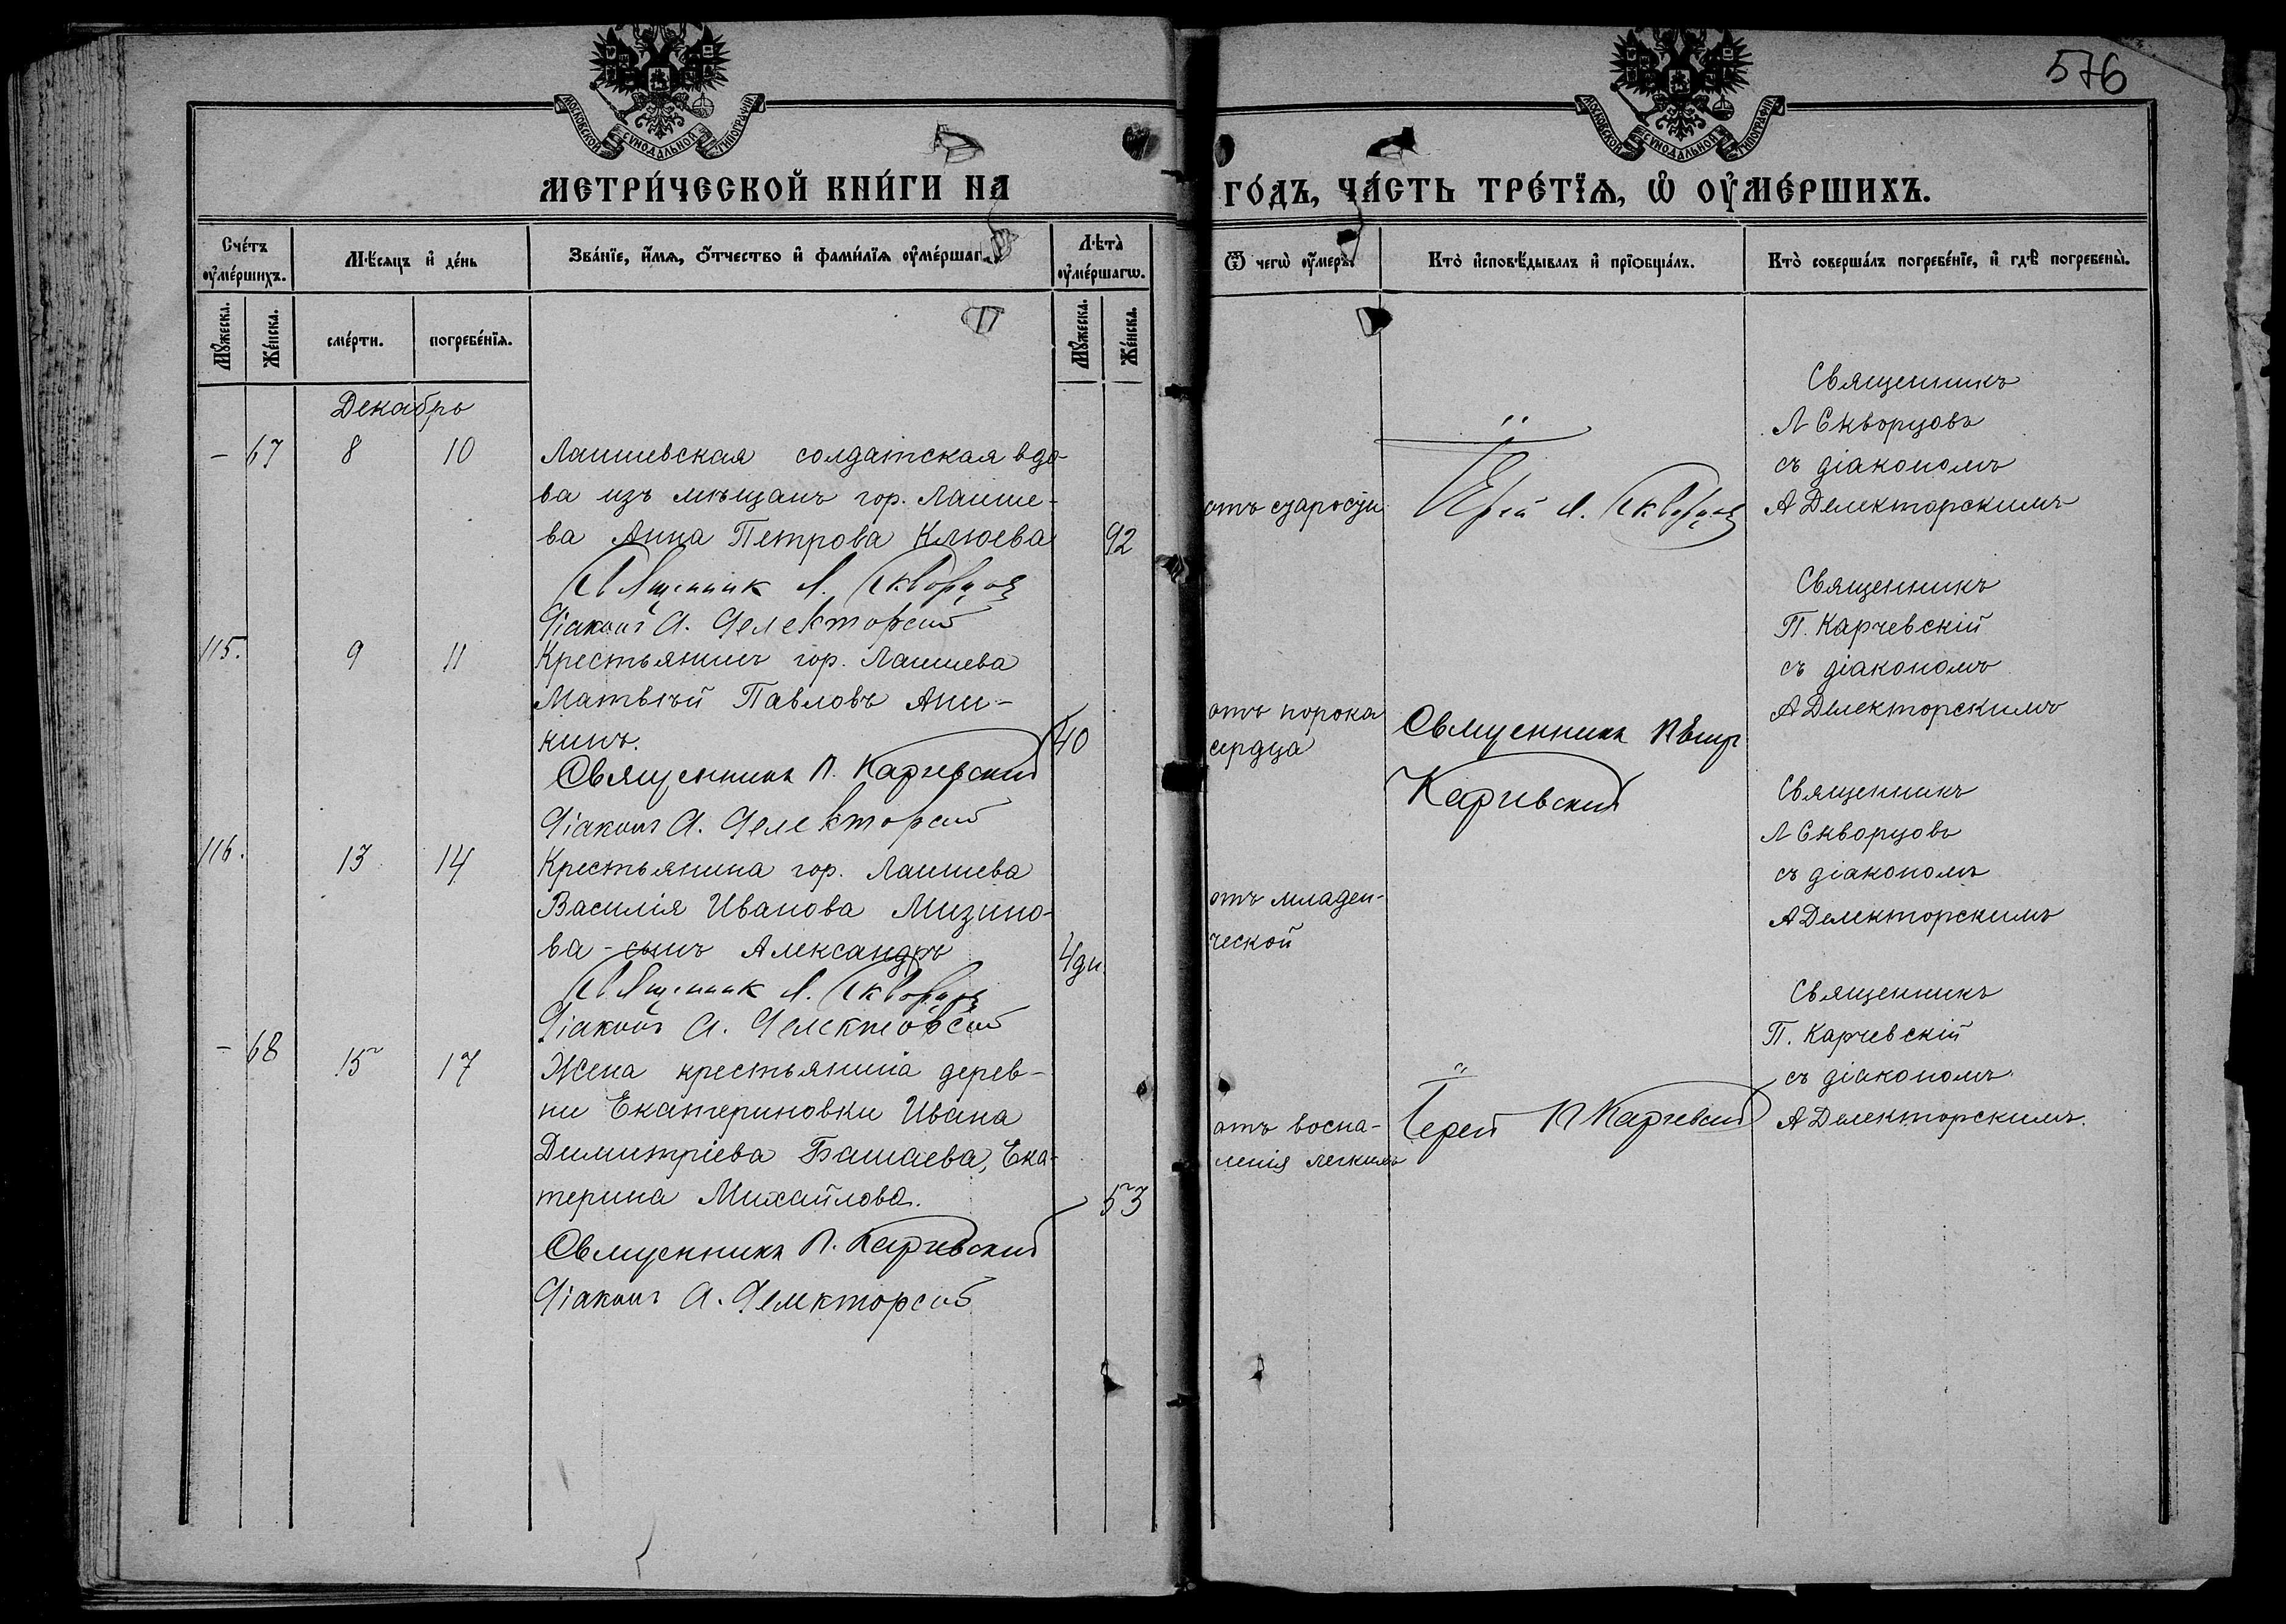 576
МОСКОВСКОЙ СѴНОДАЛЬНОЙ ТИПОГРАФІИ
МОСКОВСКОЙ СѴНОДАЛЬНОЙ ТИПОГРАФІИ
МЕТРИ́ЧЕСКОЙ КНИ́ГИ НА ГО́ДЪ, ЧА́СТЬ ТРЕ́ТЇѦ, Ѡ҆ ОУ҆МЕ́РШИХЪ.
Сче́тъ оу҆ме́ршихъ.
Мꙋ́жеска.
Же́нска.
Мѣ́сѧцъ и҆ де́нь
сме́рти.
погребе́нїѧ.
Зва́нїе, и҆́мѧ, ѻ҆́тчество и҆ фами́лїѧ оу҆ме́ршаг
Лѣ́та оу҆ме́ршагѡ.
Мꙋ́жеска.
Же́нска.
Ѿ чегѡ̀ оу҆́меръ.
Кто̀ и҆сповѣ́дывалъ и҆ прїѻбща́лъ.
Кто̀ соверша́лъ погребе́нїе, и҆ гдѣ̀ погребены̀.
Декабрь
– 67 8 10
Лаишевская солдатская вдо-
ва изъ мѣщанъ гор. Лаише-
ва Анна Петрова Клюева 92
Священник Л. Скворцов
Діаконъ А. Делекторскій
отъ старости
Іерей Л. Скворцов
Священникъ
Л Скворцовъ
съ діакономъ
А Делекторскимъ
115. 9 11
Крестьянинъ гор. Лаишева
Матвѣй Павловъ Ани-
кинъ. 40
Священникъ П. Карчевский
Діаконъ А. Делекторскій
отъ порока
сердца
Священникъ Пѣтр
Карчевский
Священникъ
П. Карчевскій
съ діакономъ
А Делекторскимъ
116. 13 14
Крестьянина гор. Лаишева
Василія Иванова Мизино-
ва - сынъ Александръ 4 дн.
Священник Л. Скворцов
Діаконъ А. Делекторскій
отъ младен-
ческой
Священникъ
Л Скворцовъ
съ діакономъ
А Делекторскимъ
– 68 15 17
Жена крестьянина дерев-
ни Екатериновки Ивана
Димитріева Башаева, Ека-
терина Михайлова. 53
Священникъ П. Карчевский
Діаконъ А. Делекторскій
отъ воспа-
ленія легкихъ
Іерей П Карчевский
Священникъ
П. Карчевскій
съ діакономъ
А Делекторскимъ.